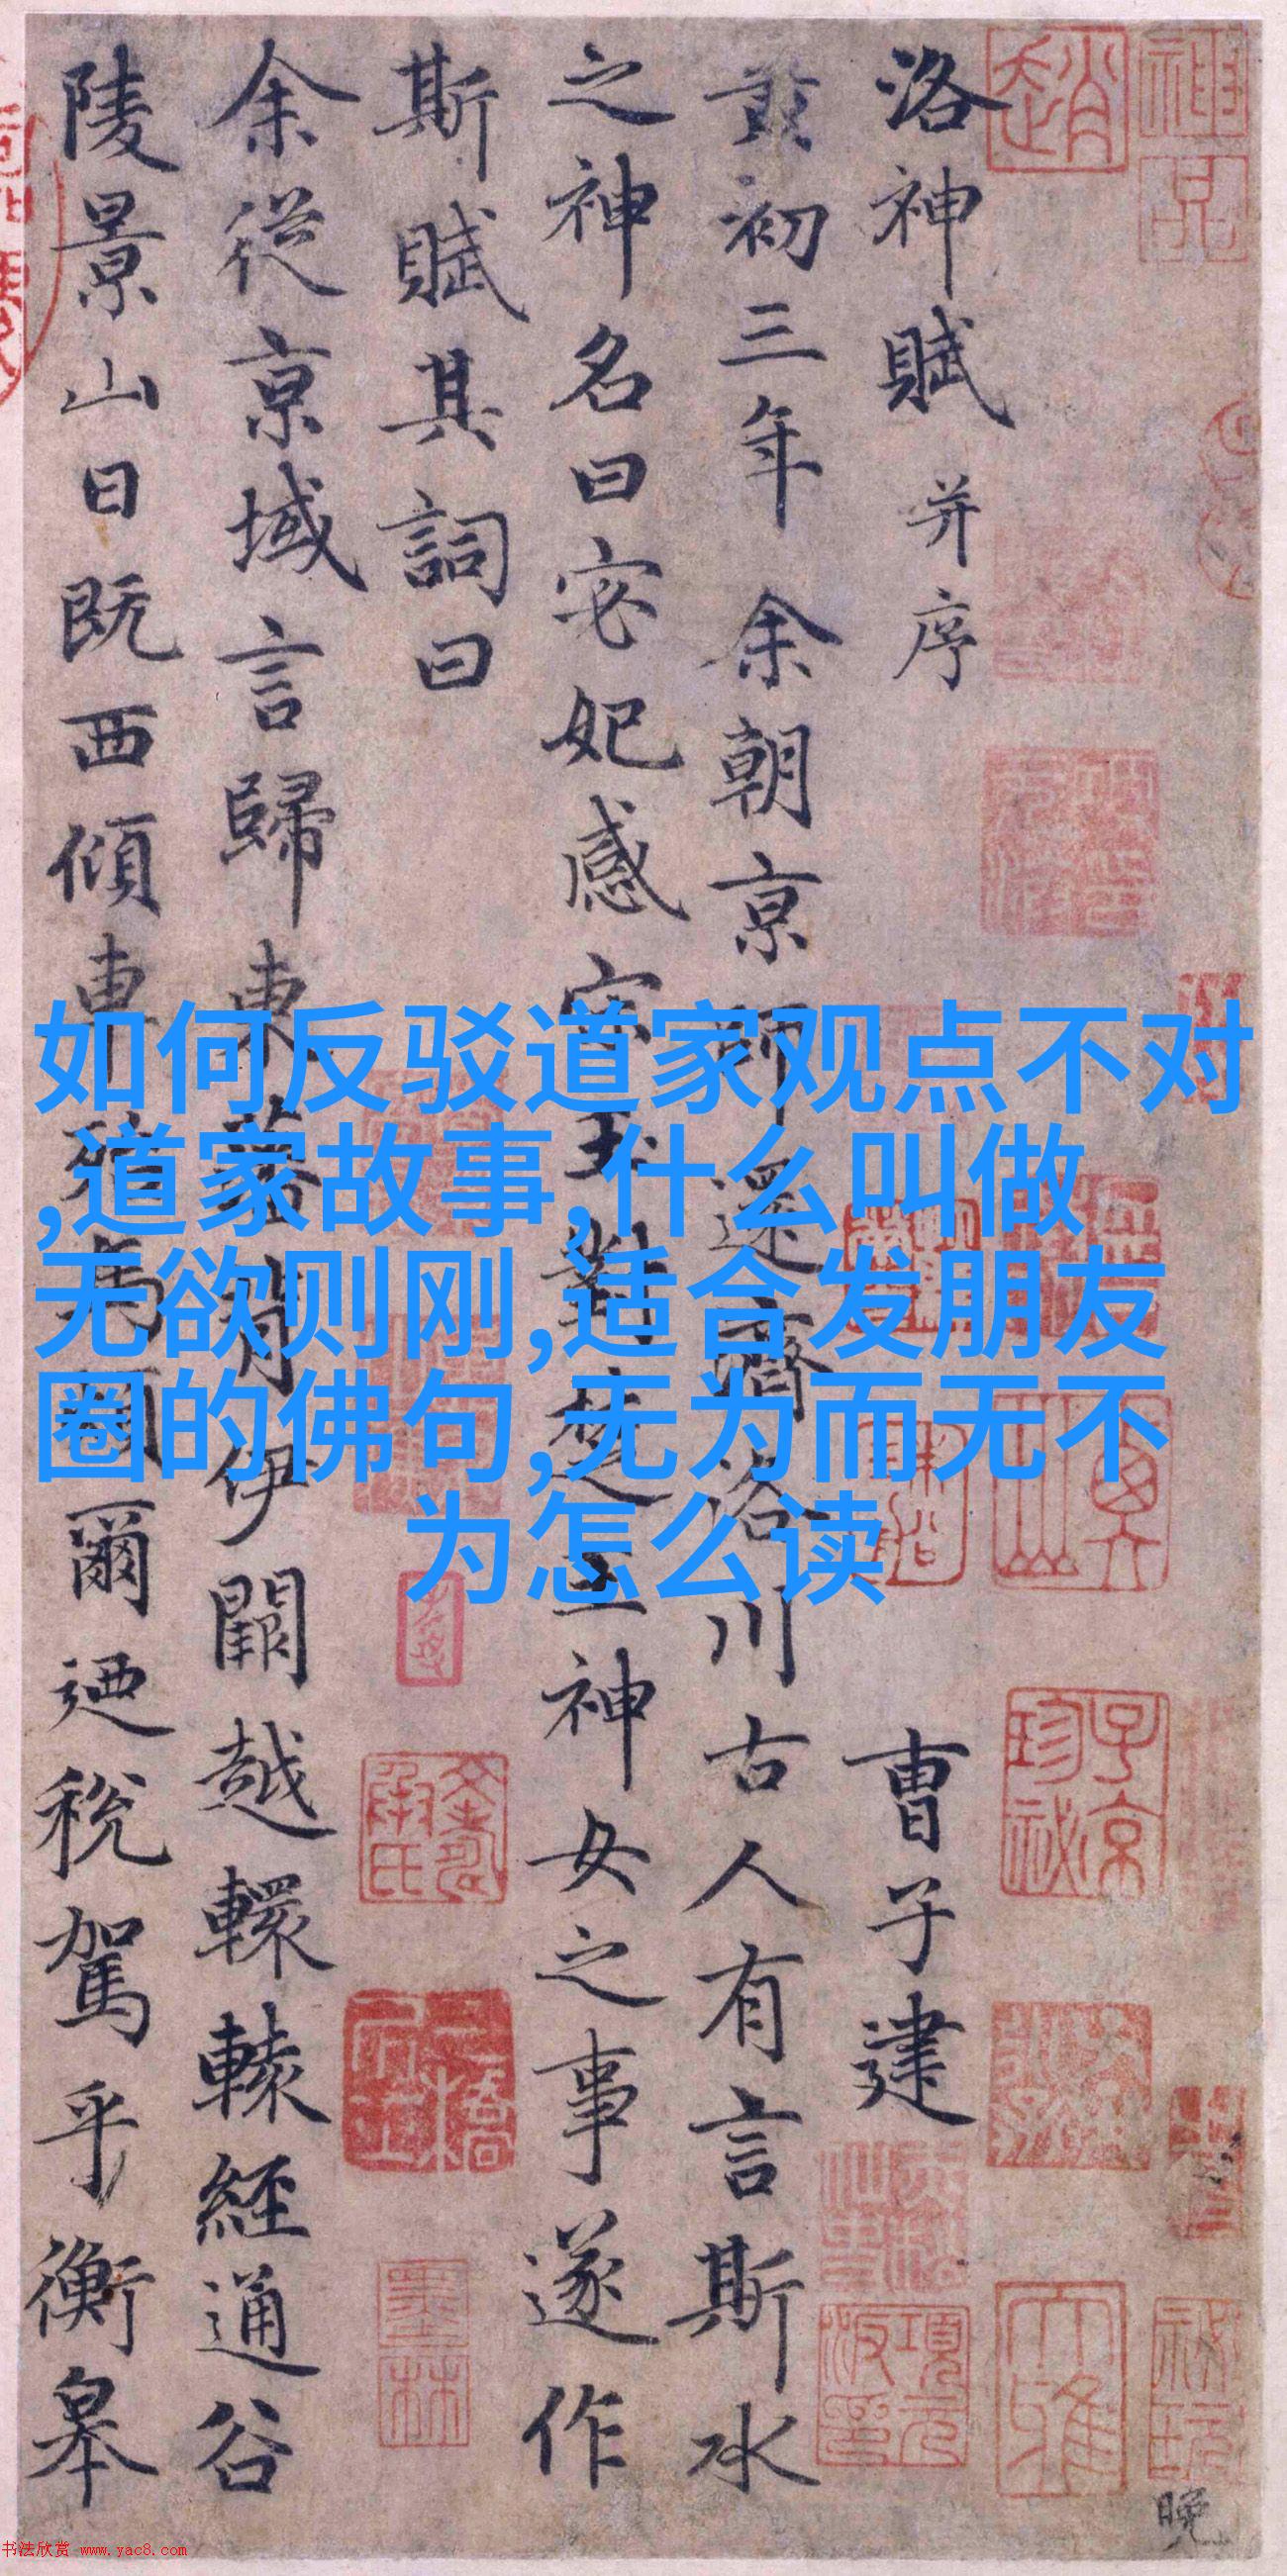 洛神賦 并序 曹子建
黄初三年余朝京師還濟洛川古人有言斯水
之神名曰宓妃感宋玉對楚王神女之事遂作
斯賦其詞曰
余從京域言歸東藩背伊闕越轘轅經通谷
陵景山日既西傾車殆馬煩爾迺税駕乎衡皋
如何反驳道家观点不对
,道家故事,什么叫做
无欲则刚,适合发朋友
圈的佛句,无为而无不
为怎么读
子京珍祕
墨林
項元汴印
晚
书法欣赏 www.yac8.com